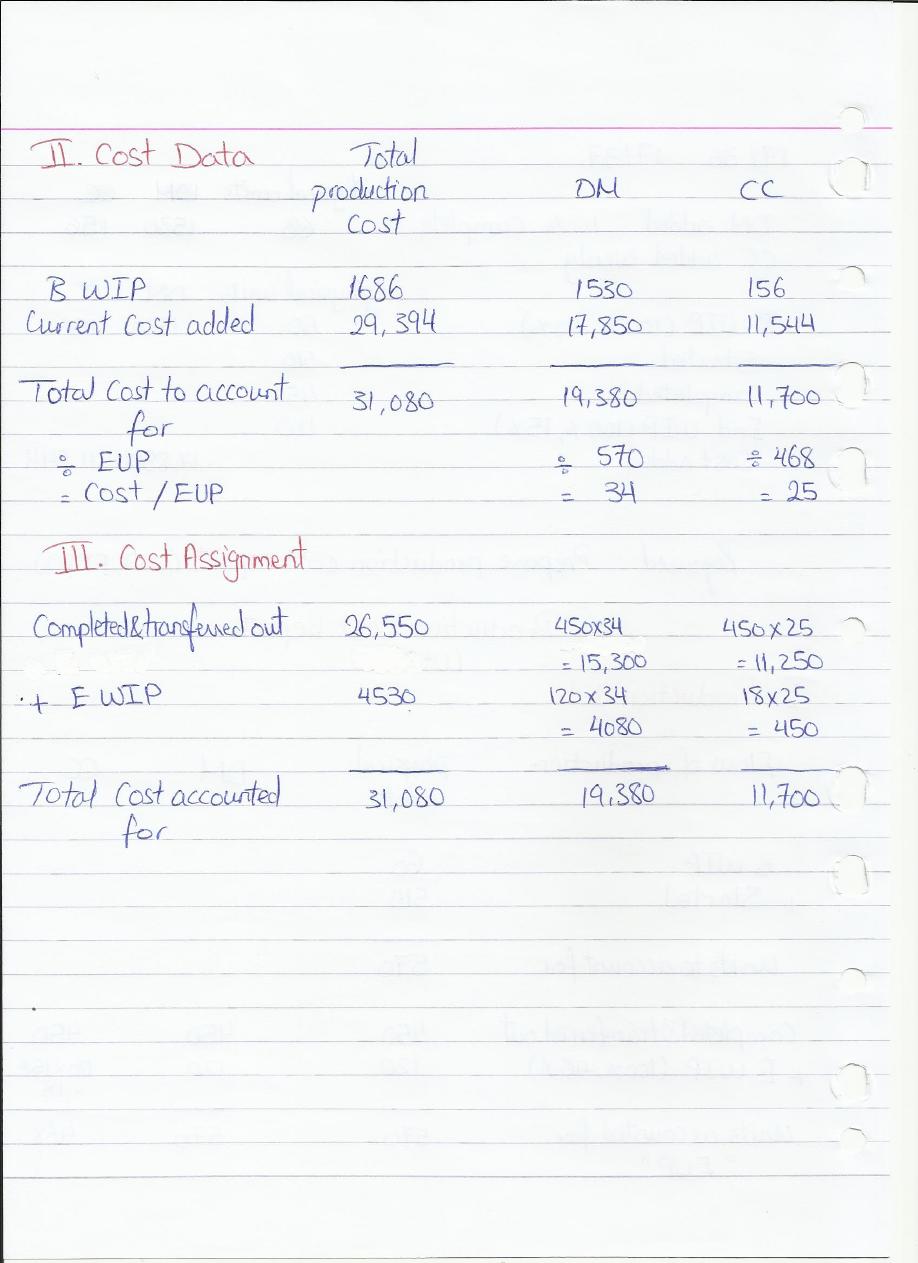 II. Cost Data Total production Cost DM CC
B WIP 1686 1530 156
Current Cost added 29,394 17,850 11,544
Total Cost to account for 31,080 19,380 11,700
÷ EUP ÷ 570 ÷ 468
= Cost / EUP = 34 = 25
III. Cost Assignment
Completed & transferred out 26,550 450x34 450x25
= 15,300 = 11,250
+ E WIP 4530 120x34 18x25
= 4080 = 450
Total Cost accounted for 31,080 19,380 11,700